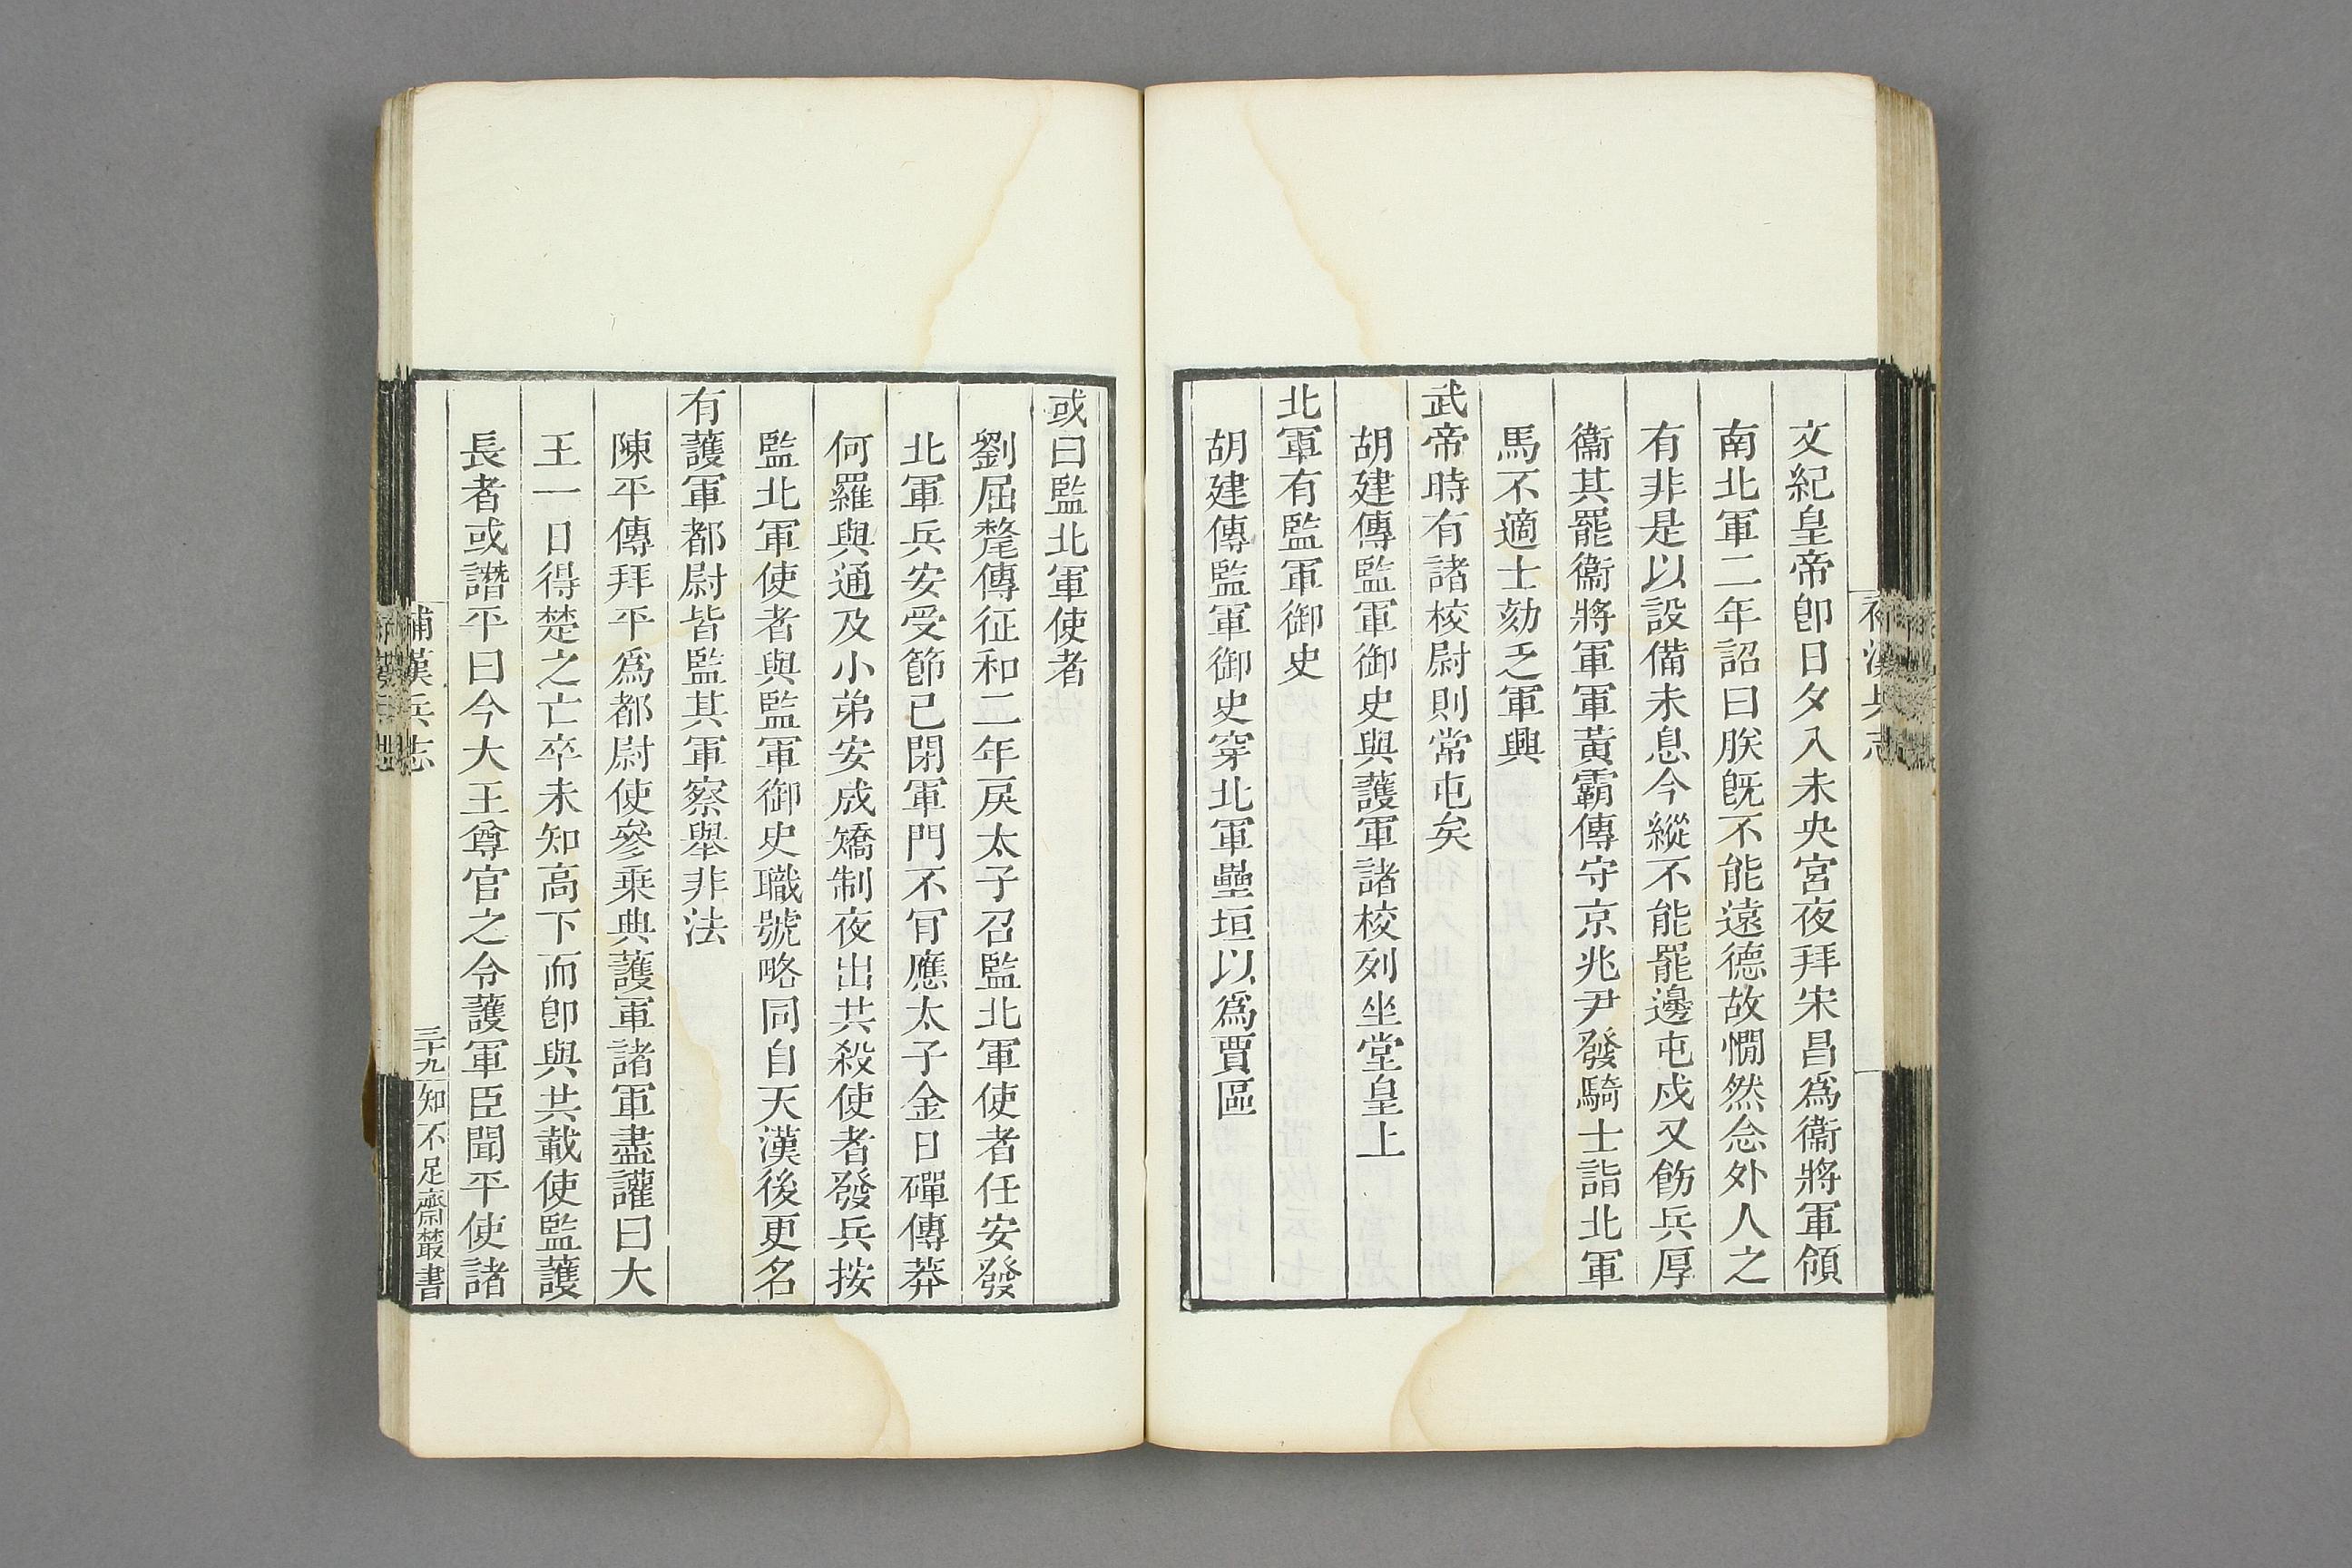 文紀皇帝卽日夕入未央宮夜拜宋昌爲衞將軍領
南北軍二年詔曰朕旣不能遠德故憪然念外人之
有非是以設備未息今縱不能罷邊屯戍又飭兵厚
衞其罷衞將軍軍黃霸傳守京兆尹發騎士詣北軍
馬不適士劾乏軍興
武帝時有諸校尉則常屯矣
胡建傳監軍御史與護軍諸校列坐堂皇上
北軍有監軍御史
胡建傳監軍御史穿北軍壘垣以爲賈區
或曰監北軍使者
劉屈氂傳征和二年戾太子召監北軍使者任安發
北軍兵安受節已閉軍門不肎應太子金日磾傳莽
何羅與通及小弟安成矯制夜出共殺使者發兵按
監北軍使者與監軍御史職號略同自天漢後更名
有護軍都尉皆監其軍察舉非法
陳平傳拜平爲都尉使參乗典護軍諸軍盡讙曰大
王一日得楚之亡卒未知高下而卽與共載使監護
長者或譖平曰今大王尊官之令護軍臣聞平使諸
補漢兵志
三十九
知不足齋叢書